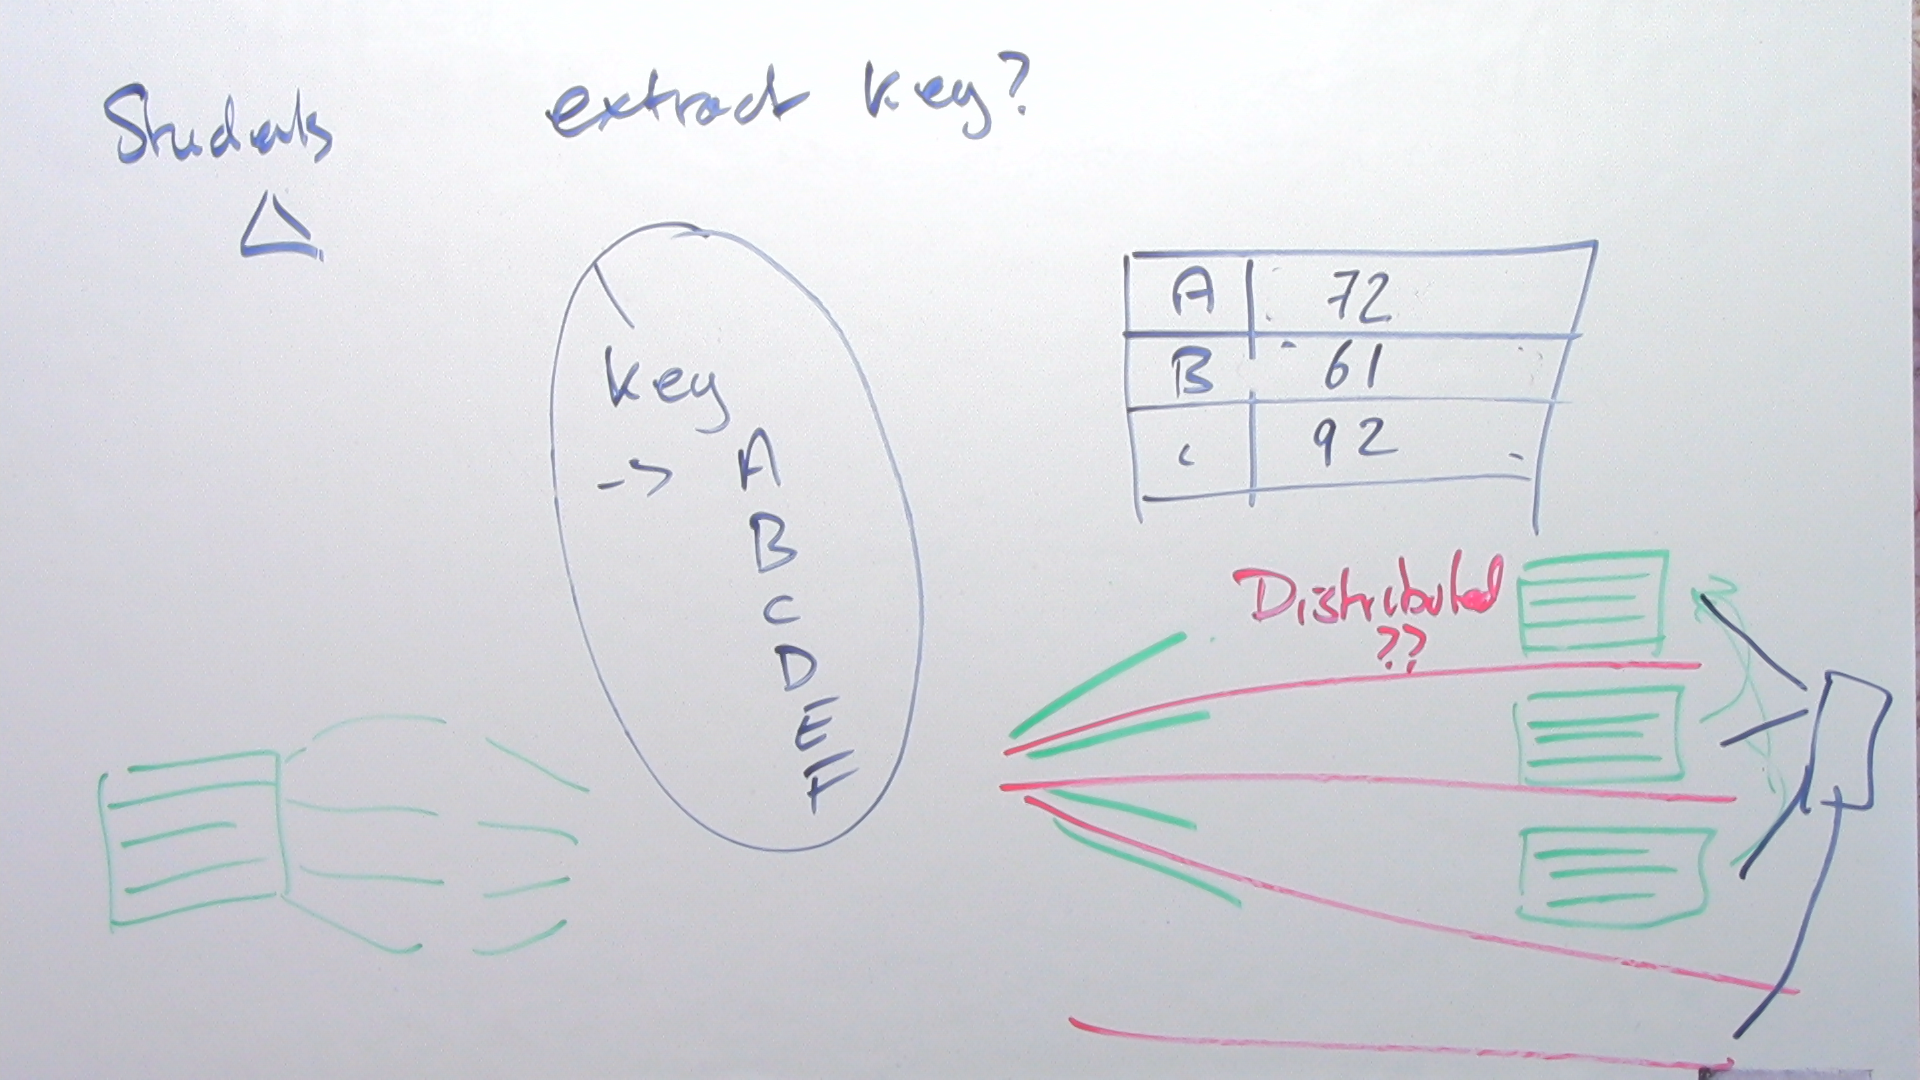 Students
extract key?
key
-> A
B
C
D
E
F
A 72
B 61
C 92
Distributed
??